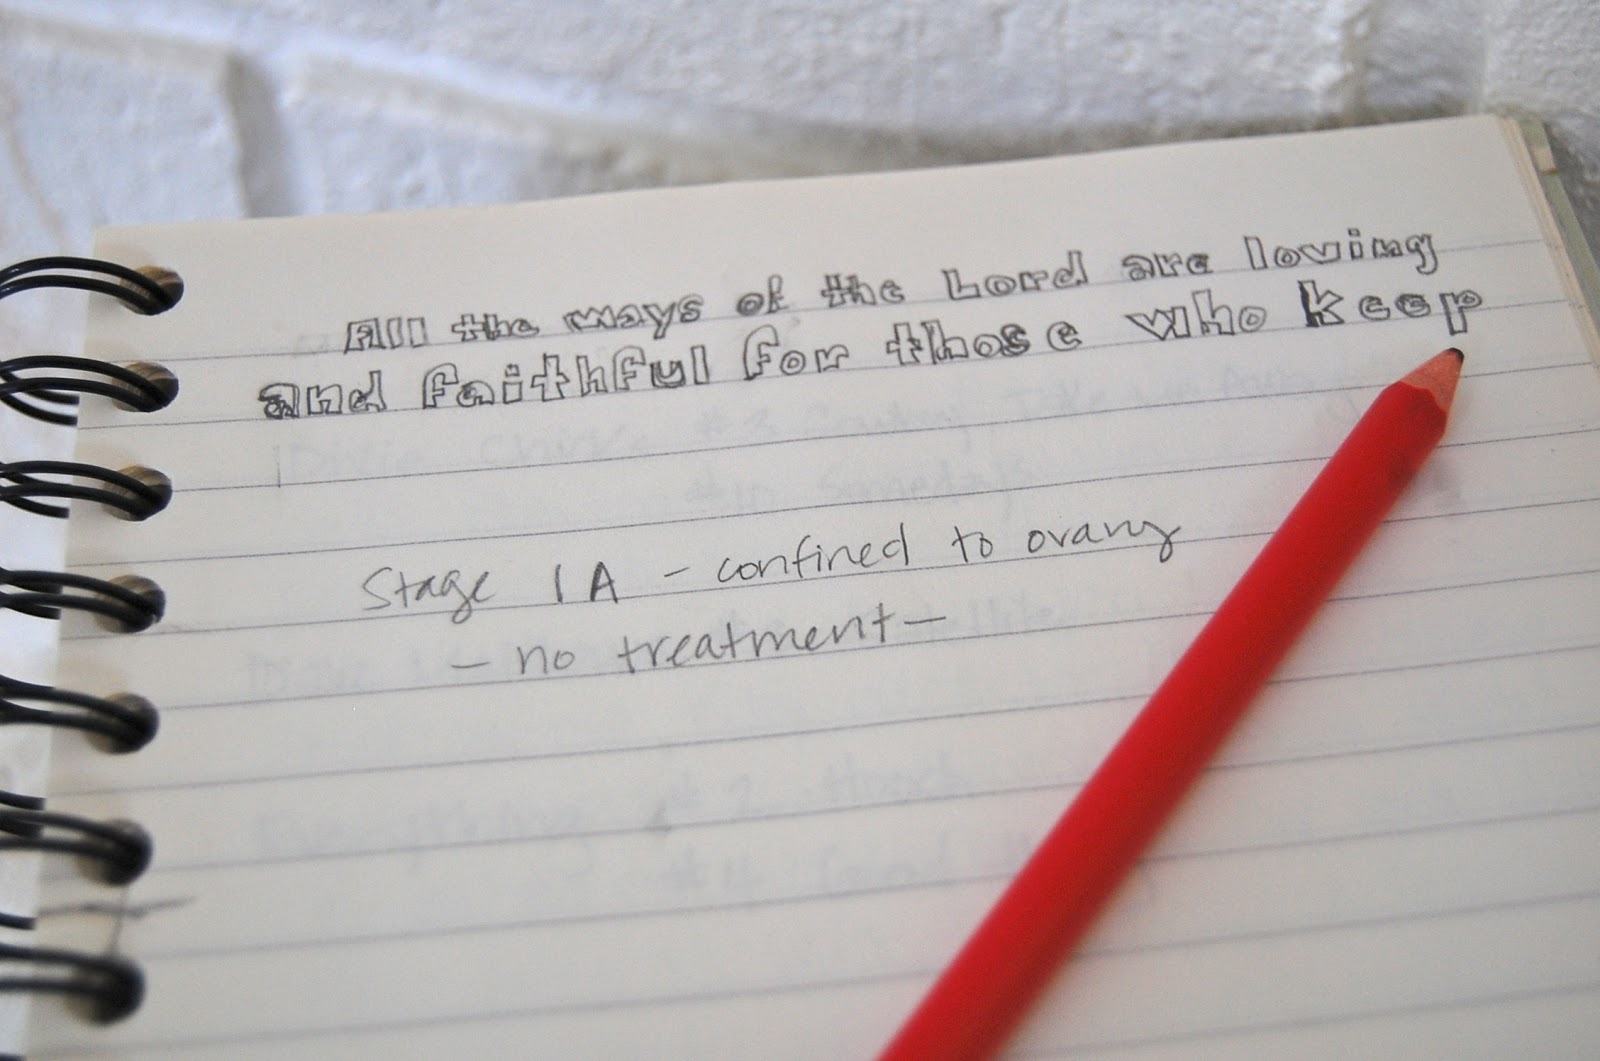 All the ways of the Lord are loving
and faithful for those who keep
Stage 1A - confined to ovary
- no treatment -